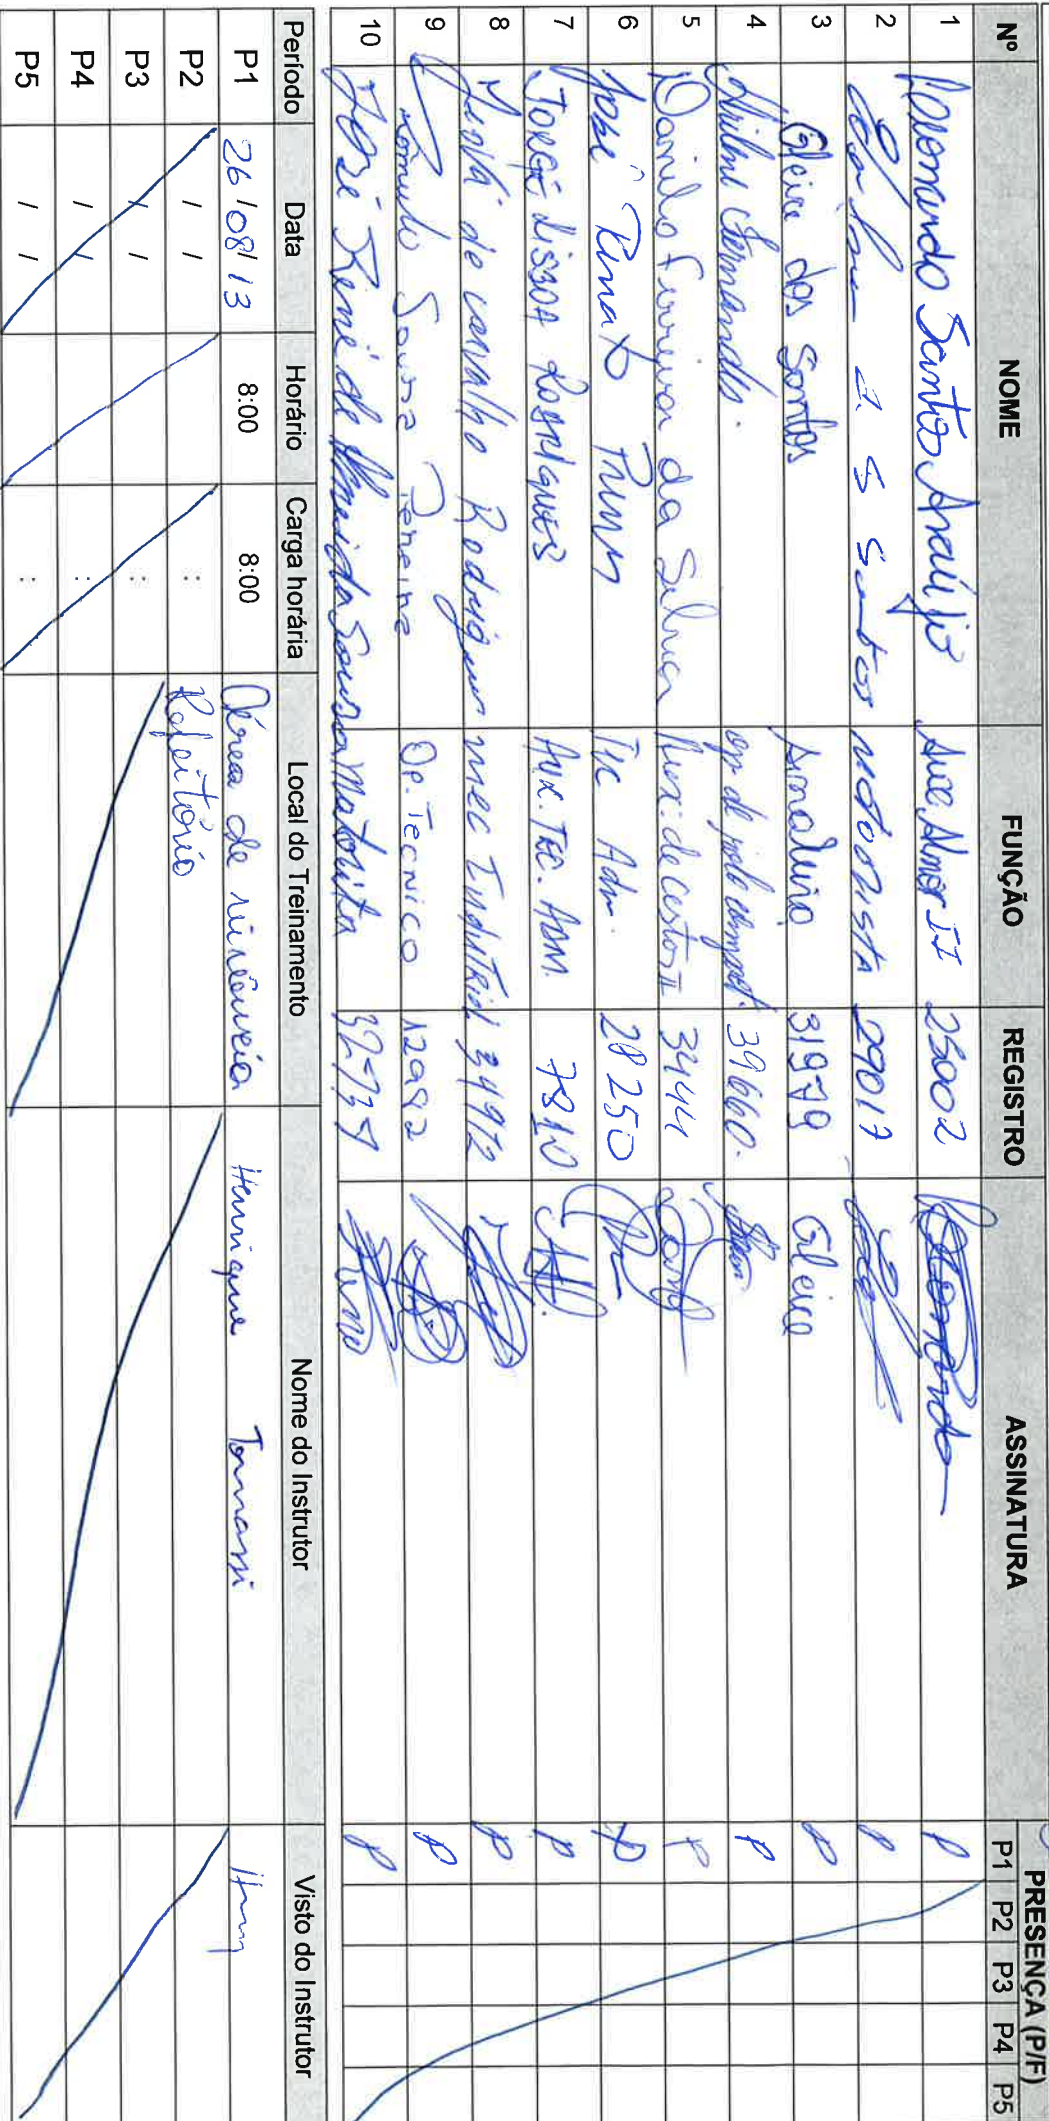 Nº NOME FUNÇÃO REGISTRO ASSINATURA PRESENÇA (P/F)
P1 P2 P3 P4 P5
1 Leonardo Santos Araújo Aux. Almox II 25002 Leonardo P
2 S Santos motorista 29017 P
3 Gleice dos Santos Armadeiro 31979 Gleice P
4 39660. P
5 Danilo Ferreira da Silva Aux. de Custo II 3444 P
6 José Renato Tec Adm. 28250 P
7 JORGE LISBOA RODRIGUES AUX. TEC. ADM. 7810 P
8 de carvalho Rodrigues mec Industrial 34972 P
9 Romulo Souza Pereira Op. Tecnico 12992 P
10 José Renê de Almeida Souza Motorista P
Período Data Horário Carga horária Local do Treinamento Nome do Instrutor Visto do Instrutor
P1 26/08/13 8:00 8:00 Área de Henrique Tomassi
P2 / / : Refeitório
P3 / / :
P4 / / :
P5 / / :